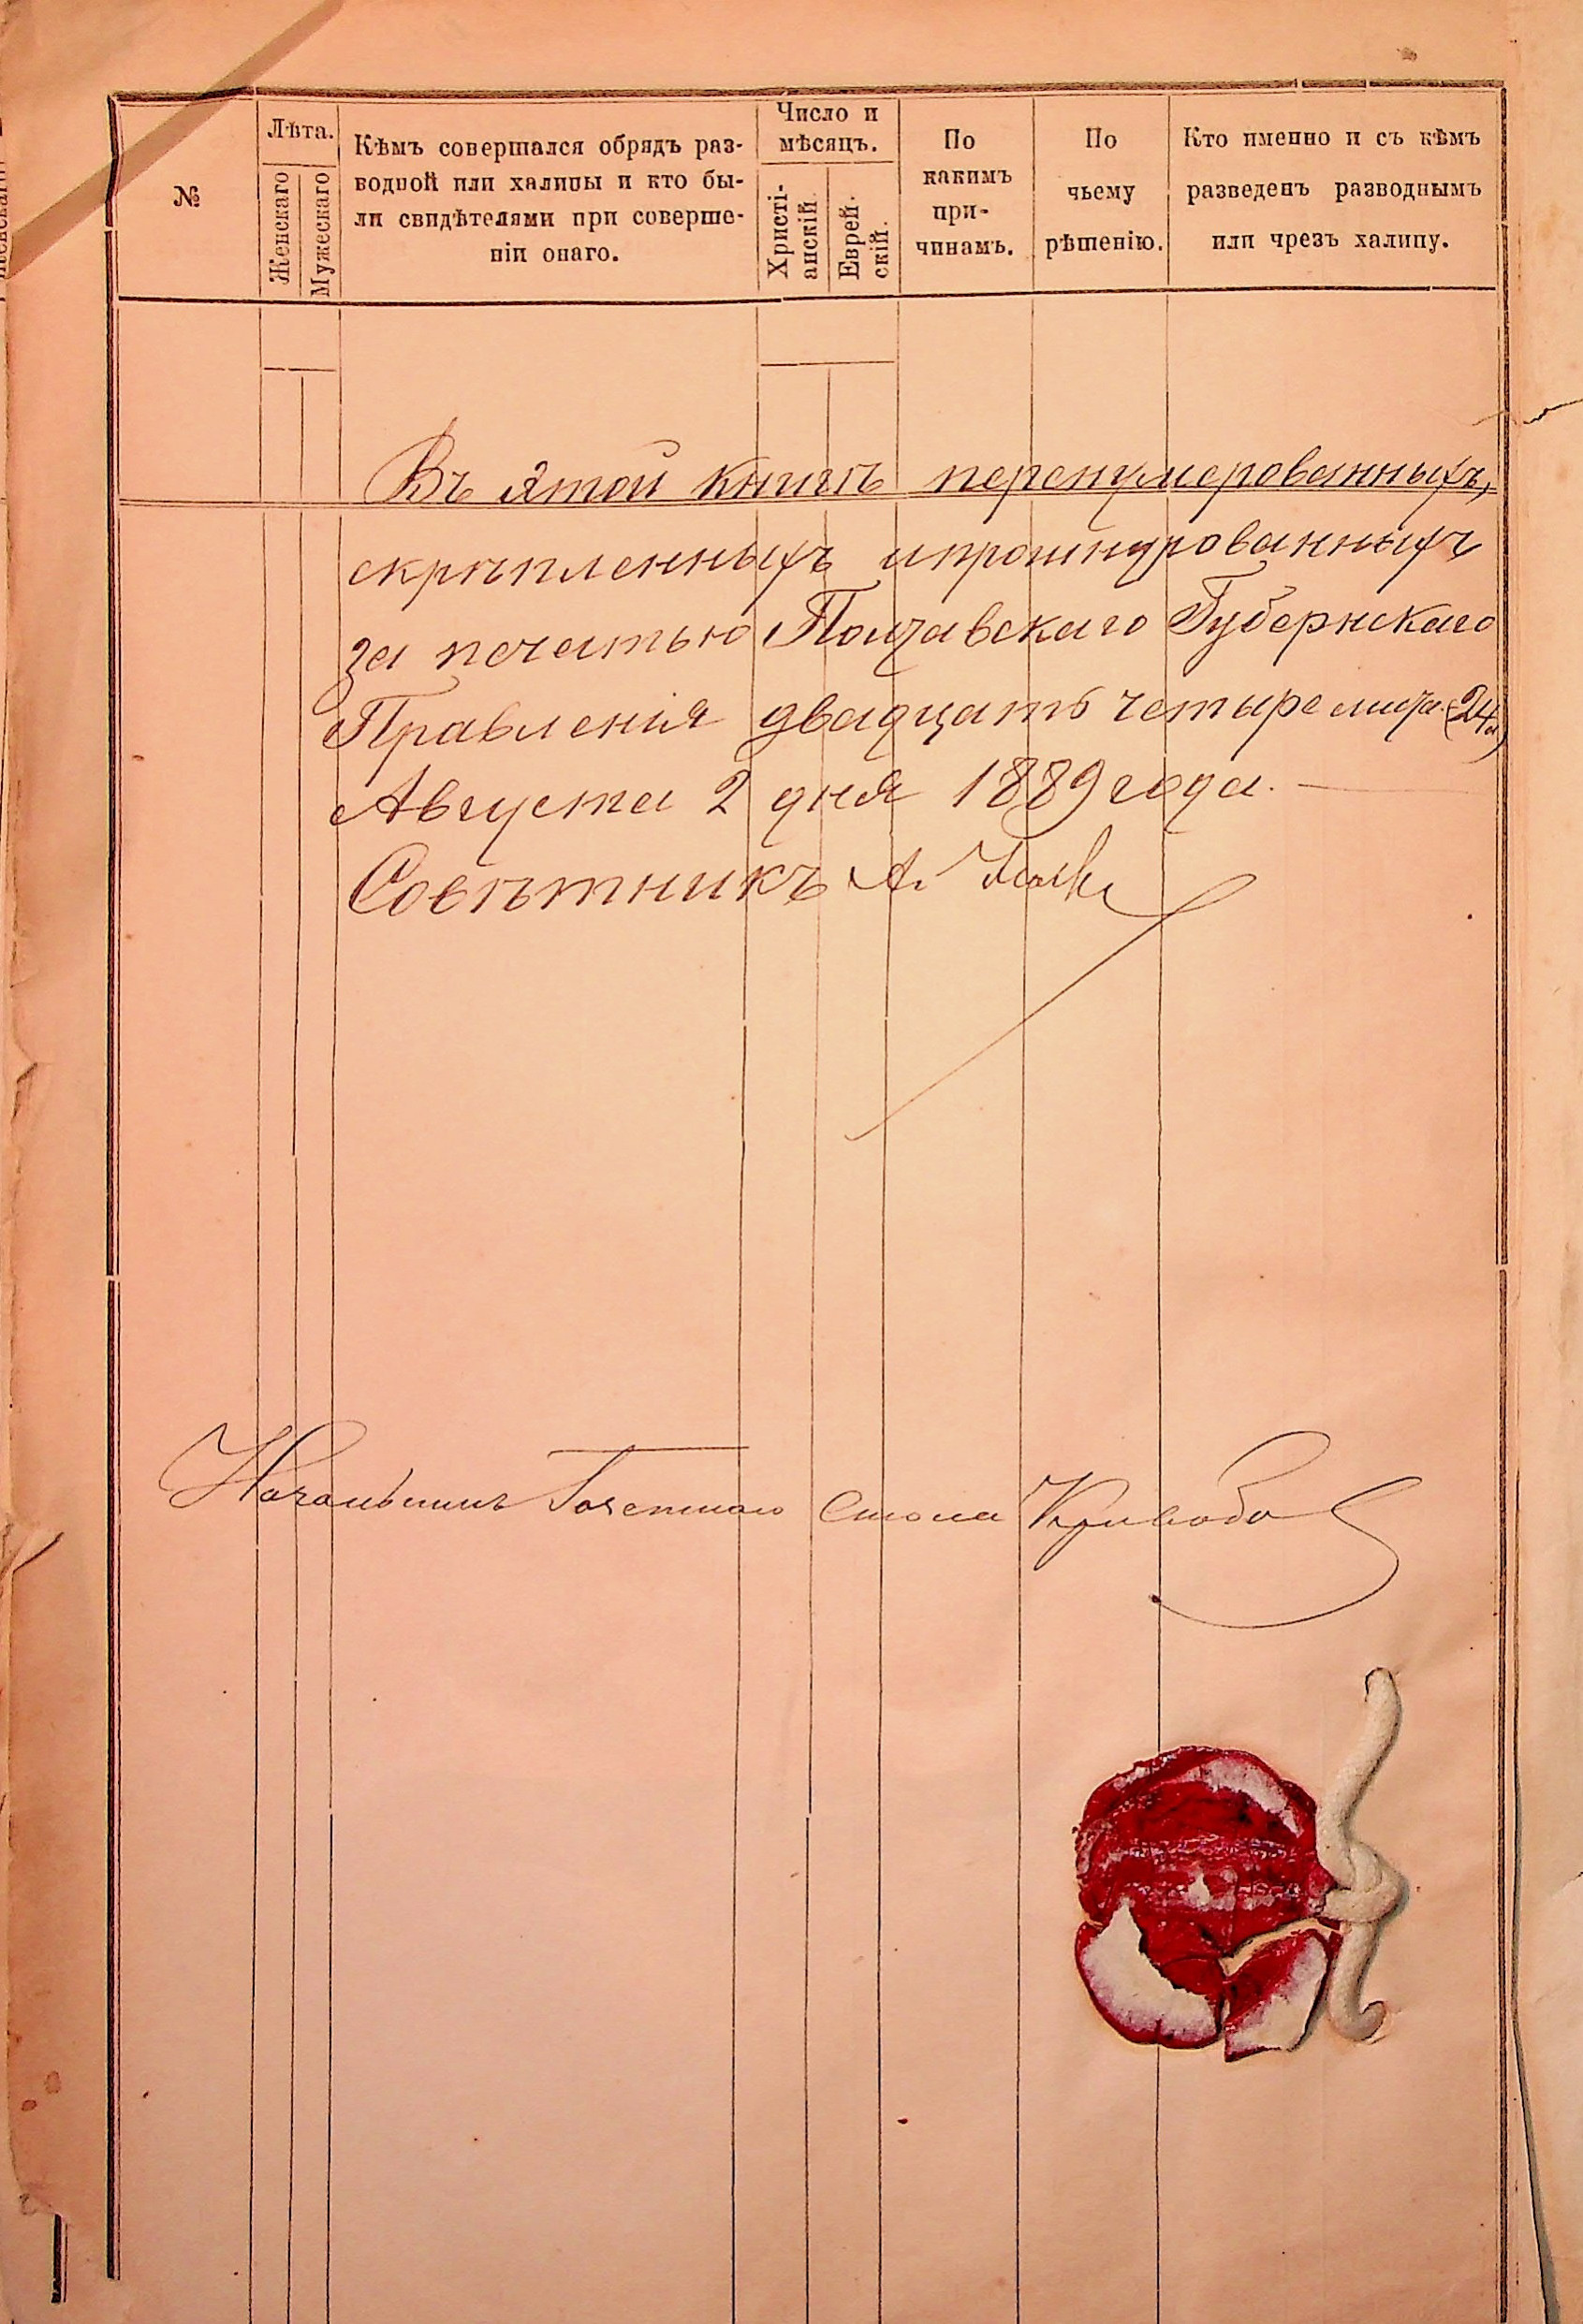 №
Лѣта.
Женскаго
Мужескаго
Кѣмъ совершался обрядъ раз-
водной или халицы и кто бы-
ли свидѣтелями при соверше-
ніи онаго.
Число и
мѣсяцъ.
Христі-
анскій.
Еврей-
скій.
По
какимъ
при-
чинамъ.
По
чьему
рѣшенію.
Кто именно и съ кѣмъ
разведенъ разводнымъ
или чрезъ халицу.
Въ ятой книгѣ перенумерованныхъ,
скрѣпленныхъ ипрошнурованныхъ
за печатью Полтавскаго Губернскаго
Правленія двадцать четыре листа (24 л)
Августа 2 дня 1889 года.
Совѣтникъ А.
Начальникъ Стола